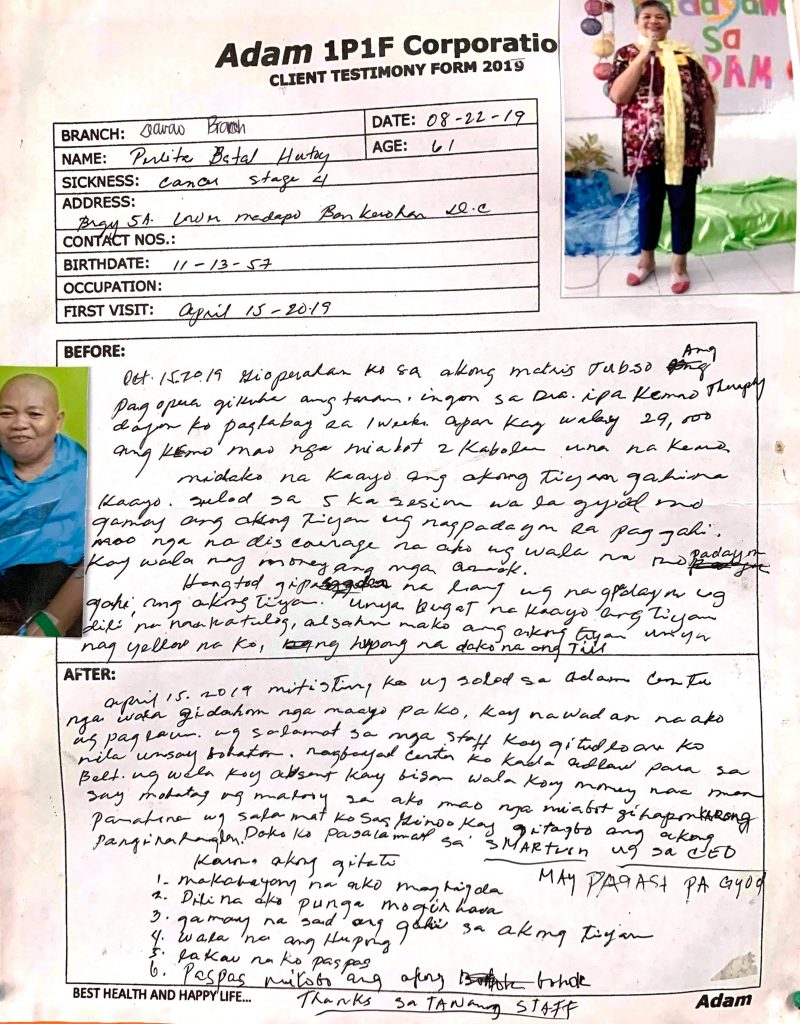 Adam 1P1F Corporatio
CLIENT TESTIMONY FORM 2019
sa
DAM
BRANCH: Davao Branch
DATE: 08-22-19
NAME: Perlita Batal
AGE: 61
SICKNESS: Cancer stage 4
ADDRESS:
Brgy 5A. Lower Madapo Bankerohan D.C
CONTACT NOS.:
BIRTHDATE: 11-13-57
OCCUPATION:
FIRST VISIT: April 15-2019
BEFORE:
Oct. 15.2019 Gioperahan ko sa akong matris Ang
pag opera gikuha ang ingon sa Dra. ipa Kemo Therephy
dayon ko paglabay sa 1 week. apan kay walay 29,000
ang Kemo mao nga miabot 2 kabolan una na Kemo
midako na kaayo ang akong tiyan gahi na
Kaayo. Sulod sa 5 ka sesion wa la gyod mo
gamay ang akong tiyan ug nagpadayon sa paggahi.
mao nga na discourage na ako ug wala na mo padayon
Kay wala nay money ang mga anak.
Hangtod na lang ug nagpadayon ug
gahi ang akong tiyan. Unya bugat na kaayo ang tiyan
dili na makatulog, alsahon nako ang akong tiyan unya
nag yellow na ko, hupong na dako na ang Tiil
AFTER:
April 15. 2019 mitisting ko ug solod sa Adam Center
nga wala gidahom nga maayo pa ko, kay nawadan na ako
ug paglaum. ug salamat sa mga staff kay gitudloan ko
nila unsay bohaton. nagbayad Center ko kada adlaw para sa
Belt. ug wala koy absent kay bisan wala koy money naa man
say mohatag ug sa ako mao nga miabot gihapon karong
panahona ug salamat ko sa Ginoo kay gitagbo ang akong
panginahanglan. Dako ko pasalamat sa SMARTLION ug sa CEO
Karon akong gitati
MAY PAGASA PA GYOD
1- makahayang na ako maghigda
2. Dili na ako punga moginhawa
3. gamay na sad ang gahi sa akong tiyan
4. wala na ang Hupong
5. lakaw na ko paspas
6. Paspas mitobo ang akong bohok
Thanks sa TANANG STAFF
BEST HEALTH AND HAPPY LIFE...
Adam